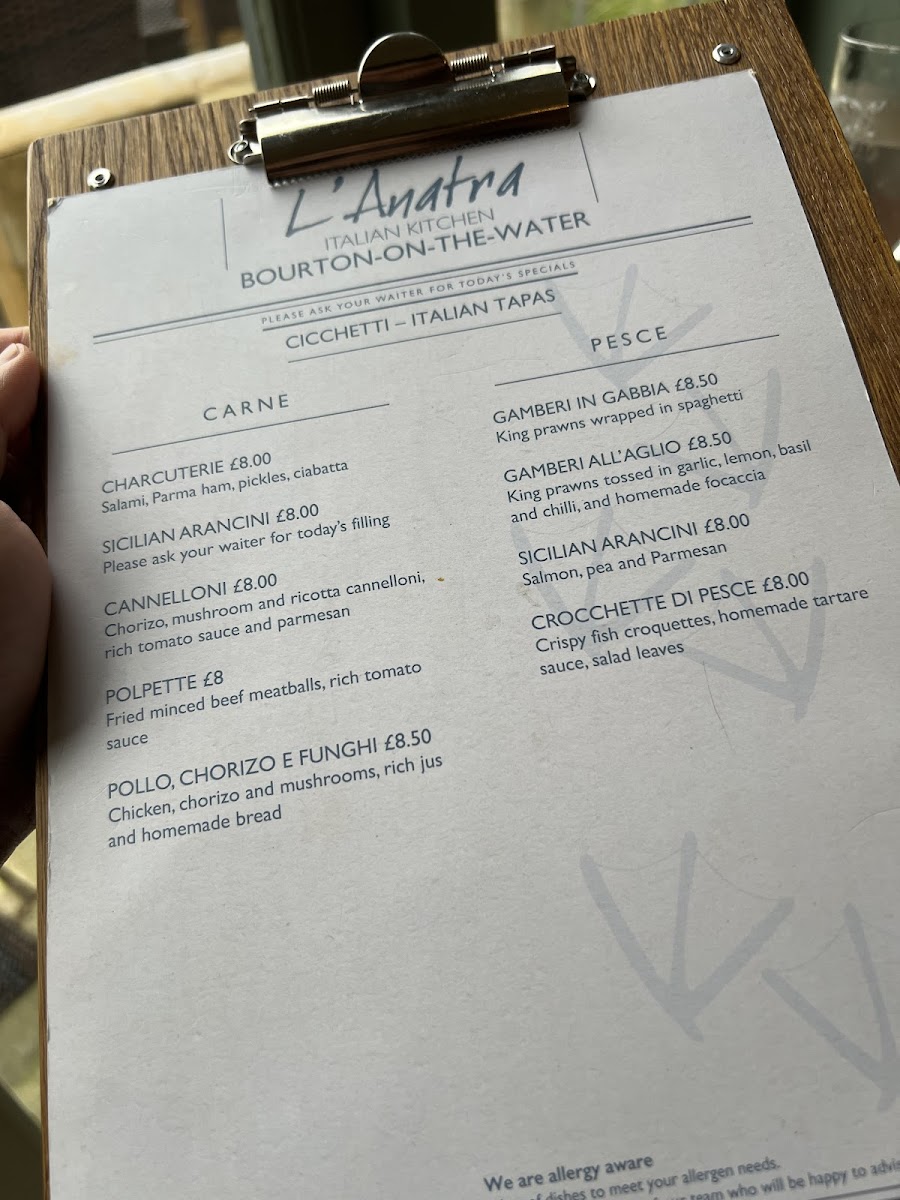 L'Anatra
ITALIAN KITCHEN
BOURTON-ON-THE-WATER
PLEASE ASK YOUR WAITER FOR TODAY'S SPECIALS
CICCHETTI – ITALIAN TAPAS
CARNE
CHARCUTERIE £8.00
Salami, Parma ham, pickles, ciabatta
SICILIAN ARANCINI £8.00
Please ask your waiter for today's filling
CANNELLONI £8.00
Chorizo, mushroom and ricotta cannelloni,
rich tomato sauce and parmesan
POLPETTE £8
Fried minced beef meatballs, rich tomato
sauce
POLLO, CHORIZO E FUNGHI £8.50
Chicken, chorizo and mushrooms, rich jus
and homemade bread
PESCE
GAMBERI IN GABBIA £8.50
King prawns wrapped in spaghetti
GAMBERI ALL'AGLIO £8.50
King prawns tossed in garlic, lemon, basil
and chilli, and homemade focaccia
SICILIAN ARANCINI £8.00
Salmon, pea and Parmesan
CROCCHETTE DI PESCE £8.00
Crispy fish croquettes, homemade tartare
sauce, salad leaves
We are allergy aware
of dishes to meet your allergen needs.
team who will be happy to